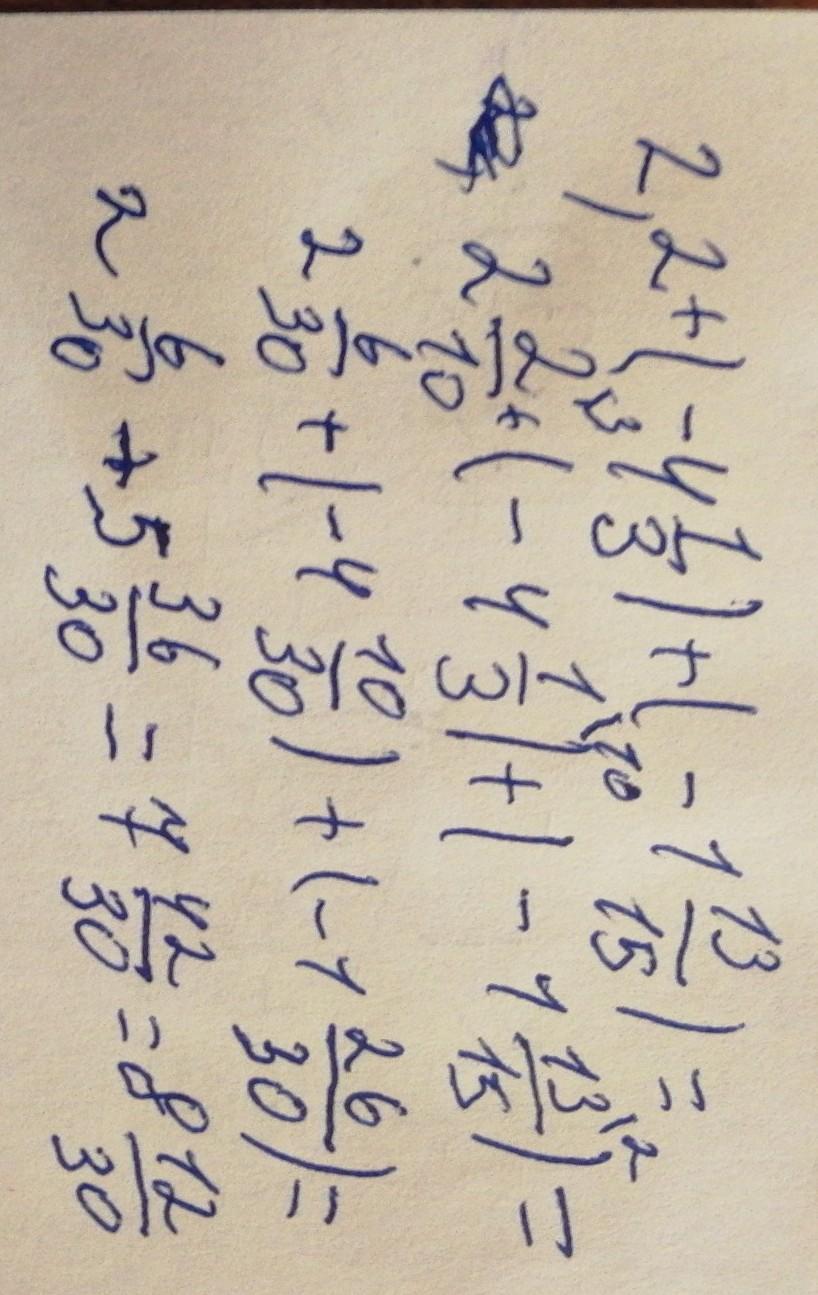 2,2 + (-4 1/3) + (-1 13/15) =
2 2/10 \3 + (-4 1/3 \10) + (-1 13/15 \2) =
2 6/30 + (-4 10/30) + (-1 26/30) =
2 6/30 + 5 36/30 = 7 42/30 = 8 12/30